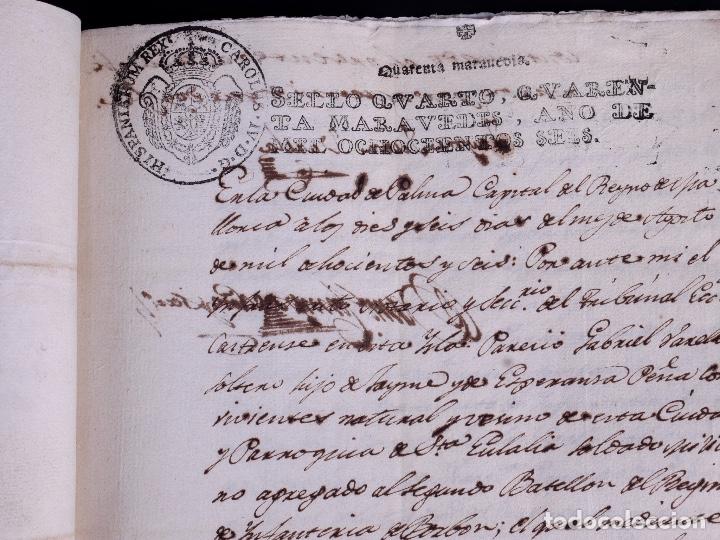 HISPANIARUM REX CAROLUS IV D G
Quarenta maravedis.
SELLO QVARTO, QVAREN-
TA MARAVEDIS, AÑO DE
MIL OCHOCIENTOS SEIS.
En la Ciudad de Palma Capital del Reyno de Ma
llorca à los dies y seis dias del mes de Agosto
de mil ochocientos y seis: Por ante mi el
infra notario y Secrio. del Tribunal Ecc
Castrense en esta Isla: Pareció Gabriel Varela
soltero hijo de Jayme y de Esperanza Peña con
vivientes natural y vecino de esta Ciudad
y Parroquia de Sta Eulalia soldado
no agregado al segundo Batallon del Regim
de Infanteria de Borbon; el qual
todocoleccion.net